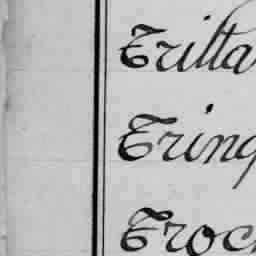 Tritta
Tring
Troc